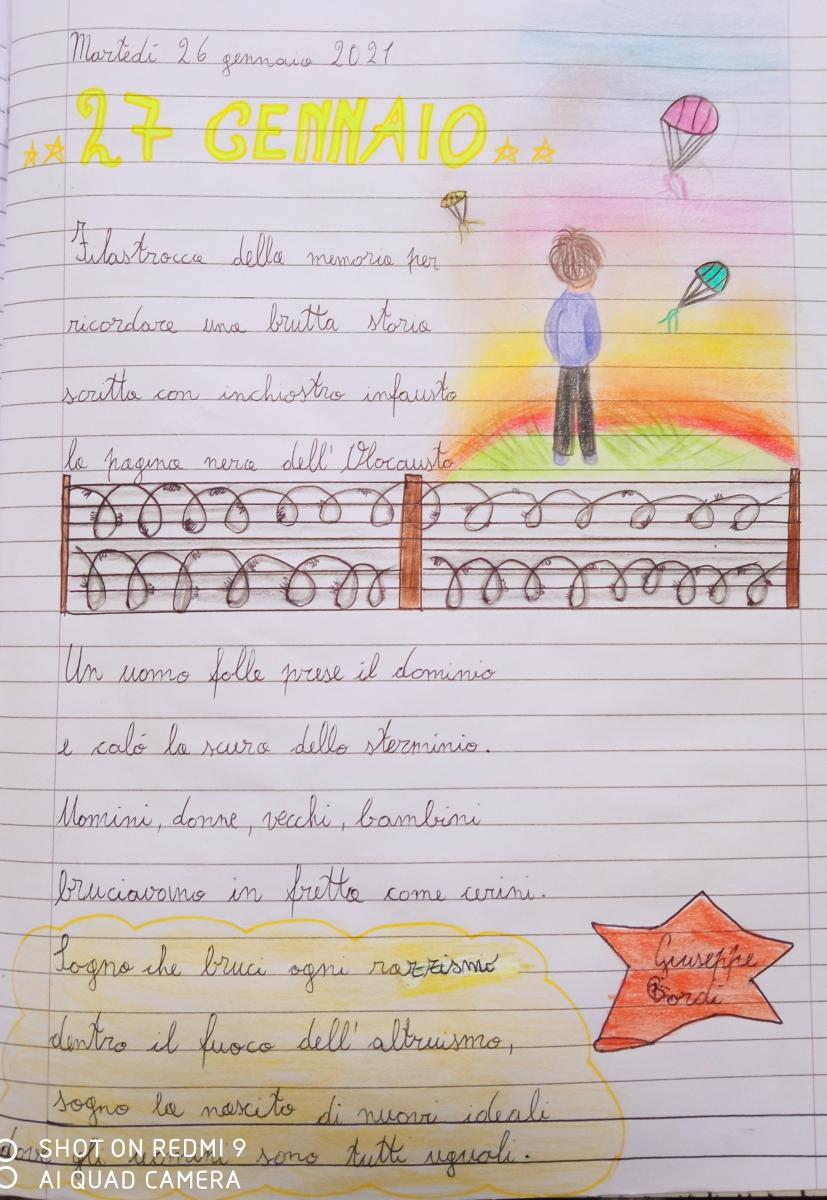 Martedí 26 gennaio 2021
27 GENNAIO
Filastrocca della memoria per
ricordare una brutta storia
scritta con inchiostro infausto
la pagina nera dell'Olocausto.
Un uomo folle prese il dominio
e caló la scura dello sterminio.
Uomini, donne, vecchi, bambini
bruciavano in fretta come cerini.
Sogno che bruci ogni razzismo
dentro il fuoco dell'altruismo,
sogno la nascita di nuovi ideali
dove gli uomini sono tutti uguali.
Giuseppe
Bordi
SHOT ON REDMI 9
AI QUAD CAMERA